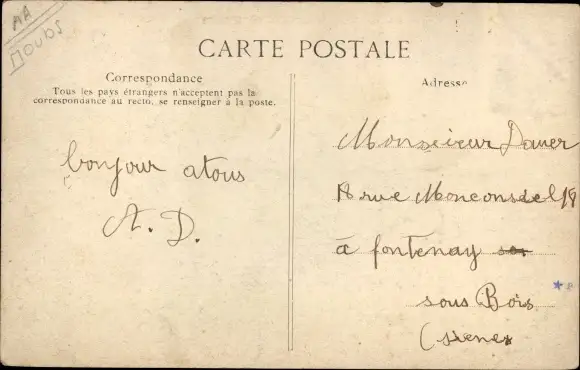 AA
Doubs
CARTE POSTALE
Correspondance
Tous les pays étrangers n'acceptent pas la
correspondance au recto, se renseigner à la poste.
bonjour atous
A. D.
Adresse
Monsieur Dauer
rue
à fontenay
sous Bois